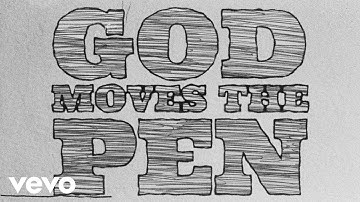 GOD
MOVES THE
PEN
vevo